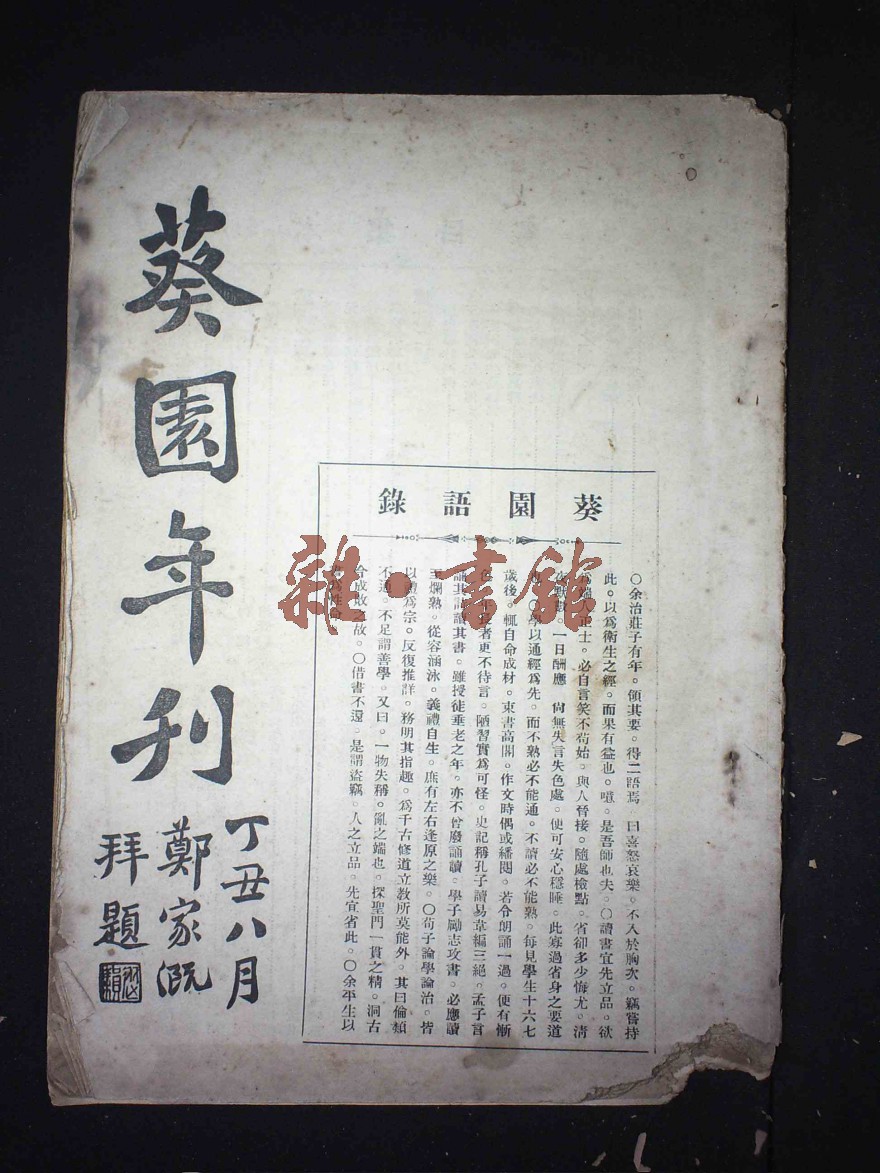 葵園年刊
丁丑八月
鄭家溉
拜題
葵園語錄
○余治莊子有年。領其要。得二語焉 曰喜怒哀樂。不入於胸次。竊嘗持
此。以爲衛生之經。而果有益也。噫。是吾師也夫。○讀書宜先立品。欲
爲端人正士。必自言笑不苟始。與人晉接。隨處檢點。省卻多少悔尤。清
夜默數。一日酬應 尙無失言失色處。便可安心穩睡。此寡過省身之要道
也。○學以通經爲先。而不熟必不能通。不讀必不能熟。每見學生十六七
歲後。輒自命成材。束書高閣。作文時偶或繙閱。若令朗誦一過。便有慚
色。年長者更不待言。陋習實爲可怪。史記稱孔子讀易韋編三絕。孟子言
誦其詩讀其書。雖授徒垂老之年。亦不曾廢誦讀。學子勵志攻書。必應讀
至爛熟。從容涵泳。義禮自生。庶有左右逢原之樂。○荀子論學論治。皆
以禮爲宗。反復推詳。務明其指趣。爲千古修道立敎所莫能外。其曰倫類
不通。不足謂善學。又曰。一物失稱。亂之端也。探聖門一貫之精。洞古
今成敗之故。○借書不還。是謂盜竊。人之立品。先宜省此。○余平生以
書爲性命
雜·書館